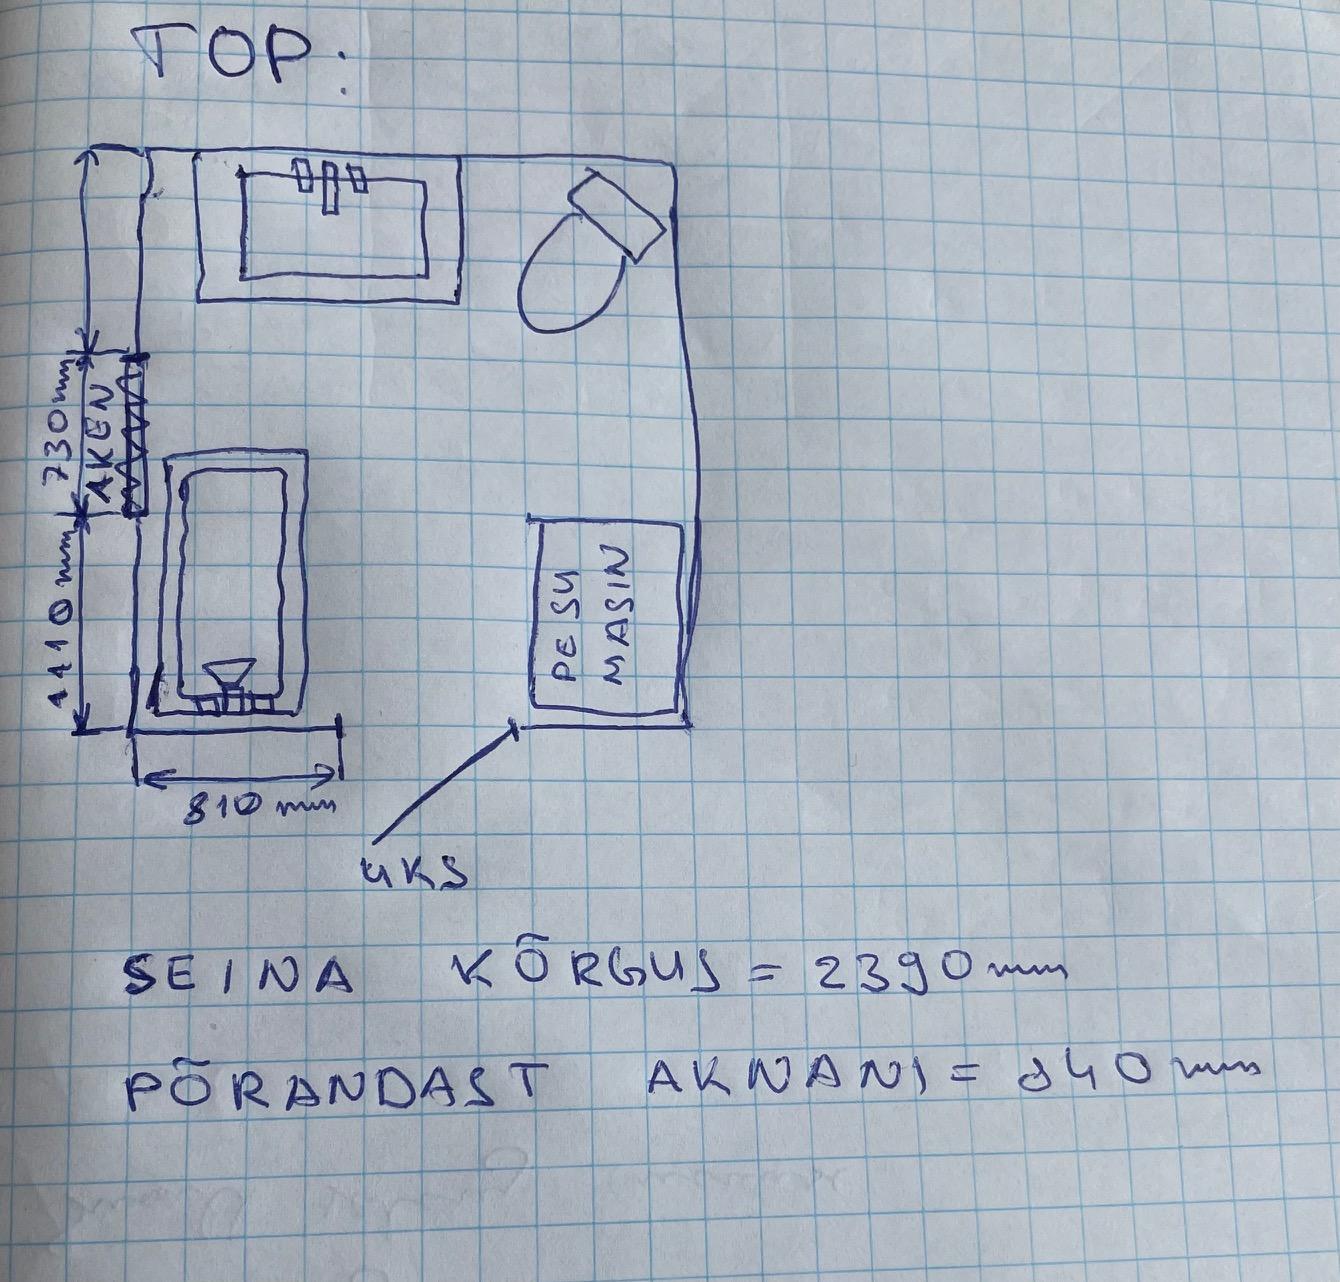 TOP:
730 mm
AKEN
1110 mm
PESU
MASIN
810 mm
UKS
SEINA KÕRGUS = 2390 mm
PÕRANDAST AKNANI = 840 mm